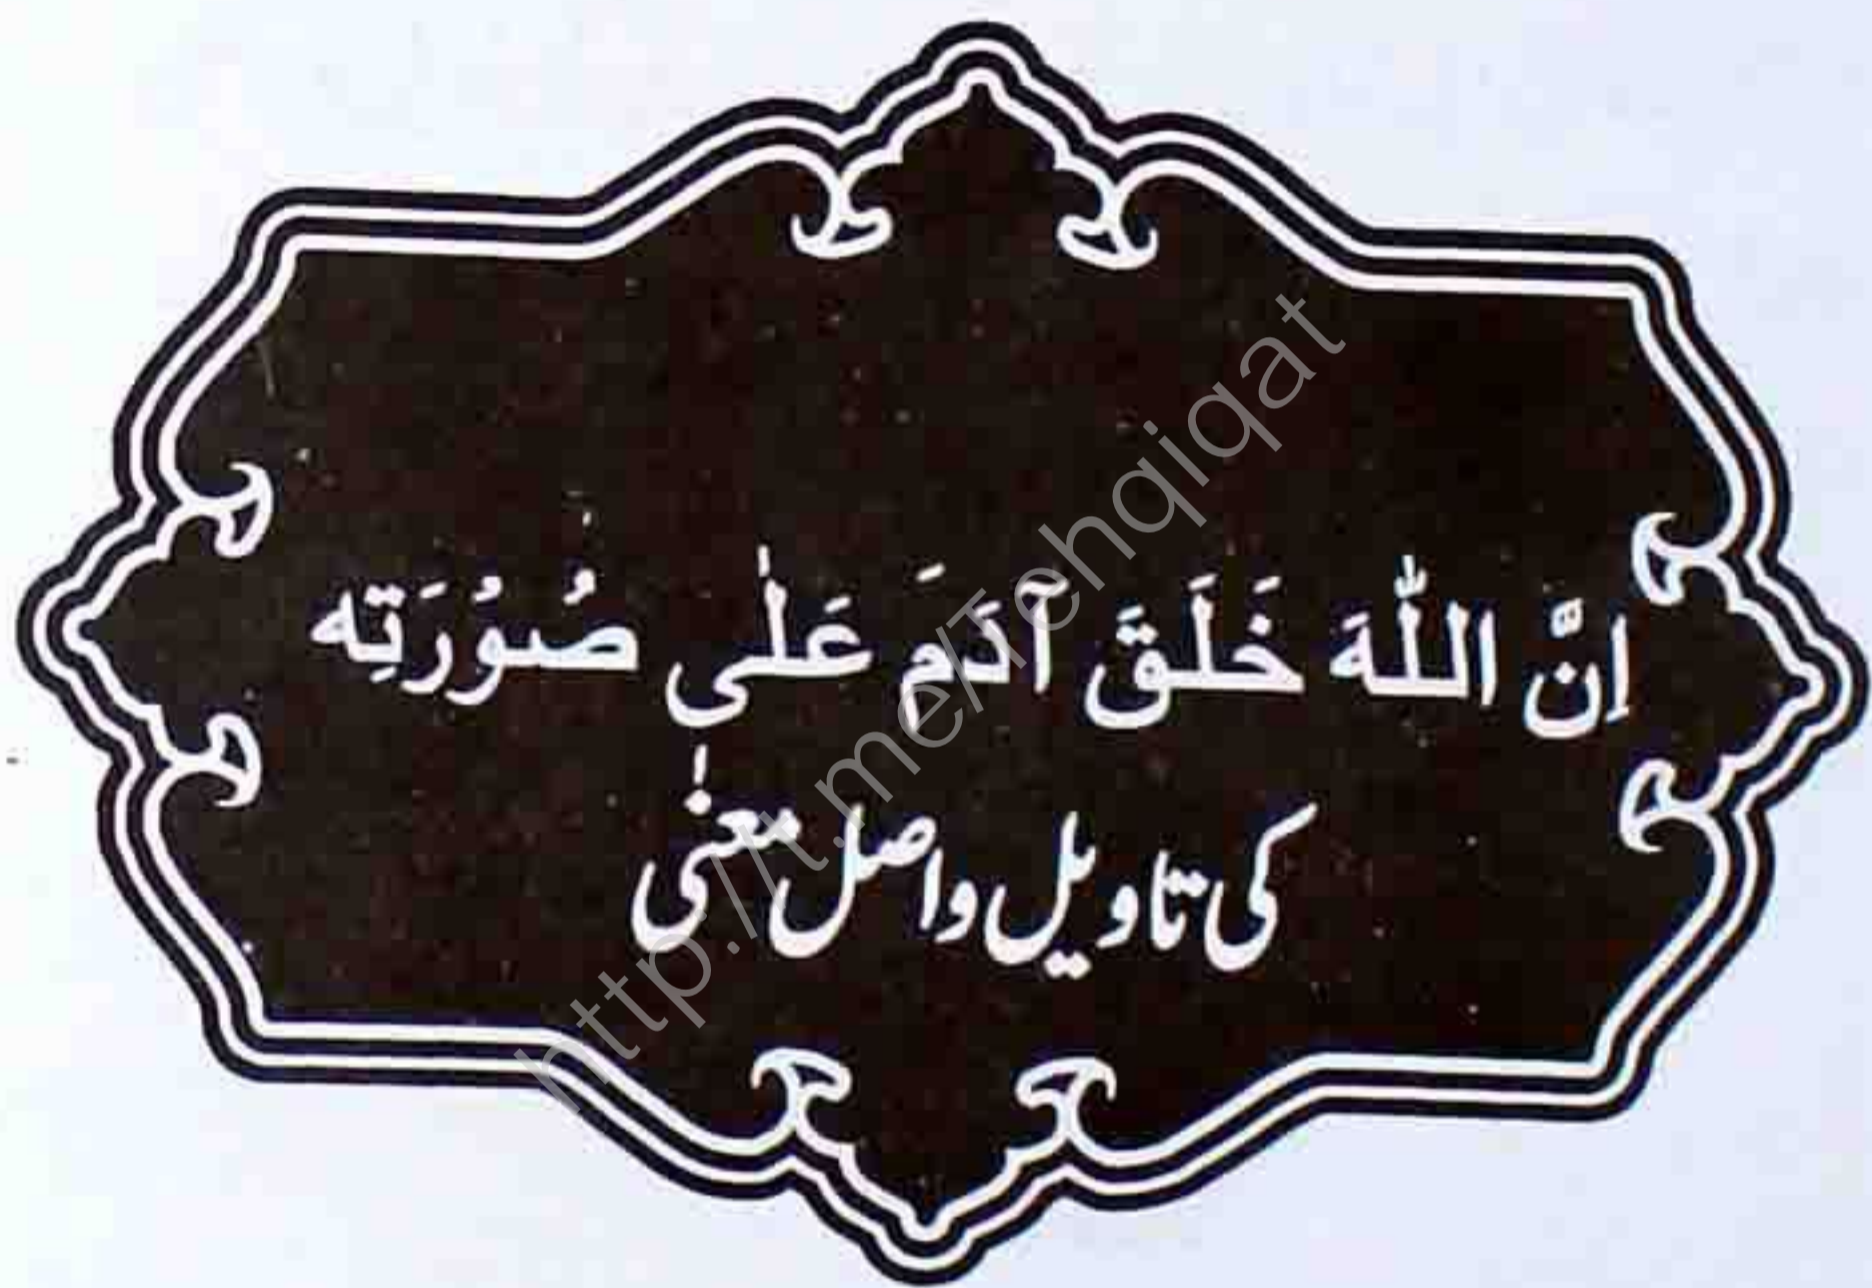 اِنَّ اللّٰهَ خَلَقَ آدَمَ عَلٰی صُوْرَتِه
کی تاویل واصل معنٰی
http://t.me/Tehqiqat